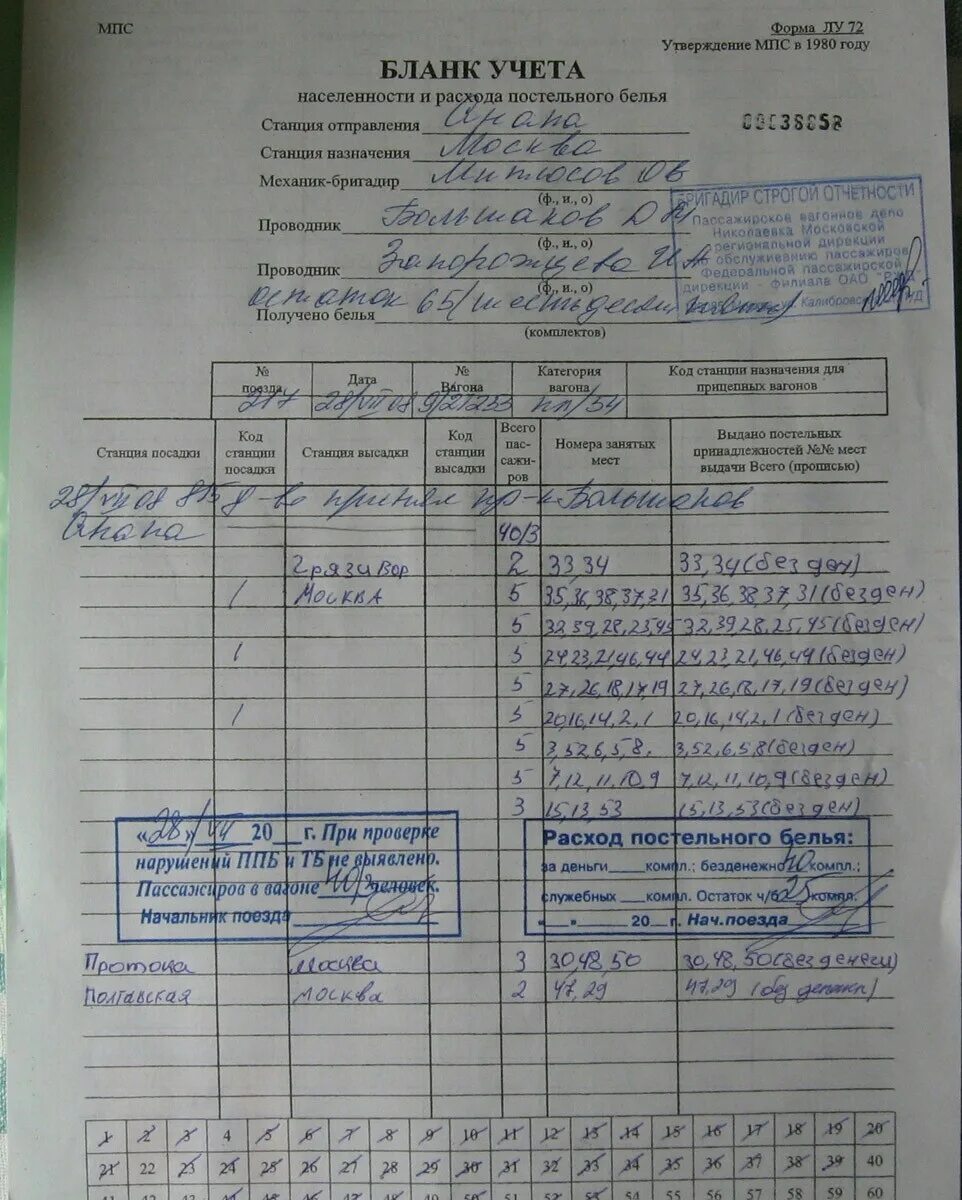 МПС
Форма ЛУ 72
Утверждение МПС в 1980 году
БЛАНК УЧЕТА
населенности и расхода постельного белья
Станция отправления Анапа
Станция назначения Москва
Механик-бригадир
(ф., и., о)
Проводник Большаков Д
(ф., и., о)
Проводник Запорожцева И А
(ф., и., о)
остаток 65/шестьдесят
Получено белья
(комплектов)
БРИГАДИР СТРОГОЙ ОТЧЕТНОСТИ
Пассажирское вагонное депо
Николаевка Московской
региональной дирекции
обслуживанию пассажиров
Федеральной пассажирской
дирекции - филиала ОАО
№ поезда
Дата
№ Вагона
Категория вагона
Код станции назначения для прицепных вагонов
217 28/VII 08 9/21253 пл/54
Станция посадки
Код станции посадки
Станция высадки
Код станции высадки
Всего пас-сажи-ров
Номера занятых мест
Выдано постельных принадлежностей №№ мест выдачи Всего (прописью)
28/VII 08 д-во принял пр-к Большаков
Анапа 40/3
Грязи Вор 2 33,34 33,34 (без ден)
1 Москва 5 35,36,38,37,31 35,36,38,37,31 (без ден)
5 32,39,28,25,45 32,39,28,25,45 (без ден)
1 5 24,23,21,46,44 24,23,21,46,44 (без ден)
5 27,26,18,17,19 27,26,18,17,19 (без ден)
1 5 20,16,14,2,1 20,16,14,2,1 (без ден)
5 3,52,6,5,8, 3,52,6,5,8 (без ден)
5 7,12,11,10,9 7,12,11,10,9 (без ден)
3 15,13,53 15,13,53 (без ден)
«28» VII 20__г. При проверке
нарушений ППБ и ТБ не выявлено.
Пассажиров в вагоне 40/3 человек.
Начальник поезда
Расход постельного белья:
за деньги____компл.; безденежно 40 компл.;
служебных ___компл. Остаток ч/б 25 компл.
«__»______20__г. Нач.поезда
Протока Москва 3 30,48,50 30,48,50 (без денег)
Полтавская Москва 2 47,29 47,29 (без
1 2 3 4 5 6 7 8 9 10 11 12 13 14 15 16 17 18 19 20
21 22 23 24 25 26 27 28 29 30 31 32 33 34 35 36 37 38 39 40